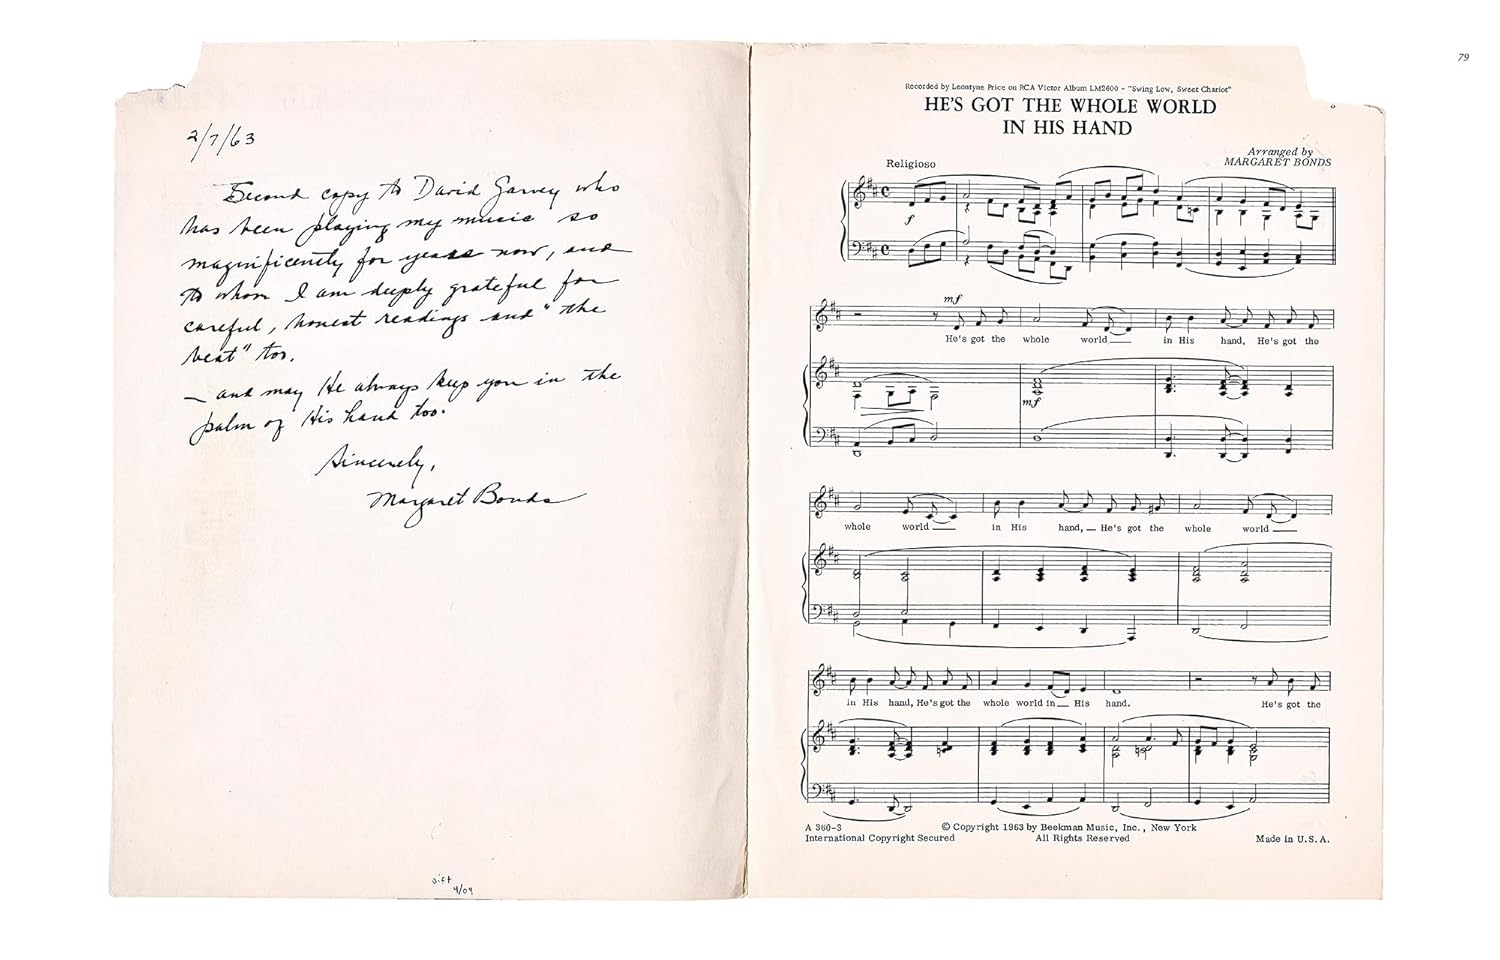 79
2/7/63
Second copy to David Garvey who
has been playing my music so
magnificently for years now, and
to whom I am deeply grateful for
careful, honest readings and "the
beat" too.
— and may He always keep you in the
palm of His hand too.
Sincerely,
Margaret Bonds
gift
4/09
Recorded by Leontyne Price on RCA Victor Album LM2600 - "Swing Low, Sweet Chariot"
HE'S GOT THE WHOLE WORLD
IN HIS HAND
Arranged by
MARGARET BONDS
Religioso
f
mf
He's got the whole world___ in His hand, He's got the
mf
whole world ___ in His hand, — He's got the whole world ___
in His hand, He's got the whole world in __ His hand. He's got the
A 360-3
© Copyright 1963 by Beekman Music, Inc., New York
International Copyright Secured All Rights Reserved Made in U.S.A.